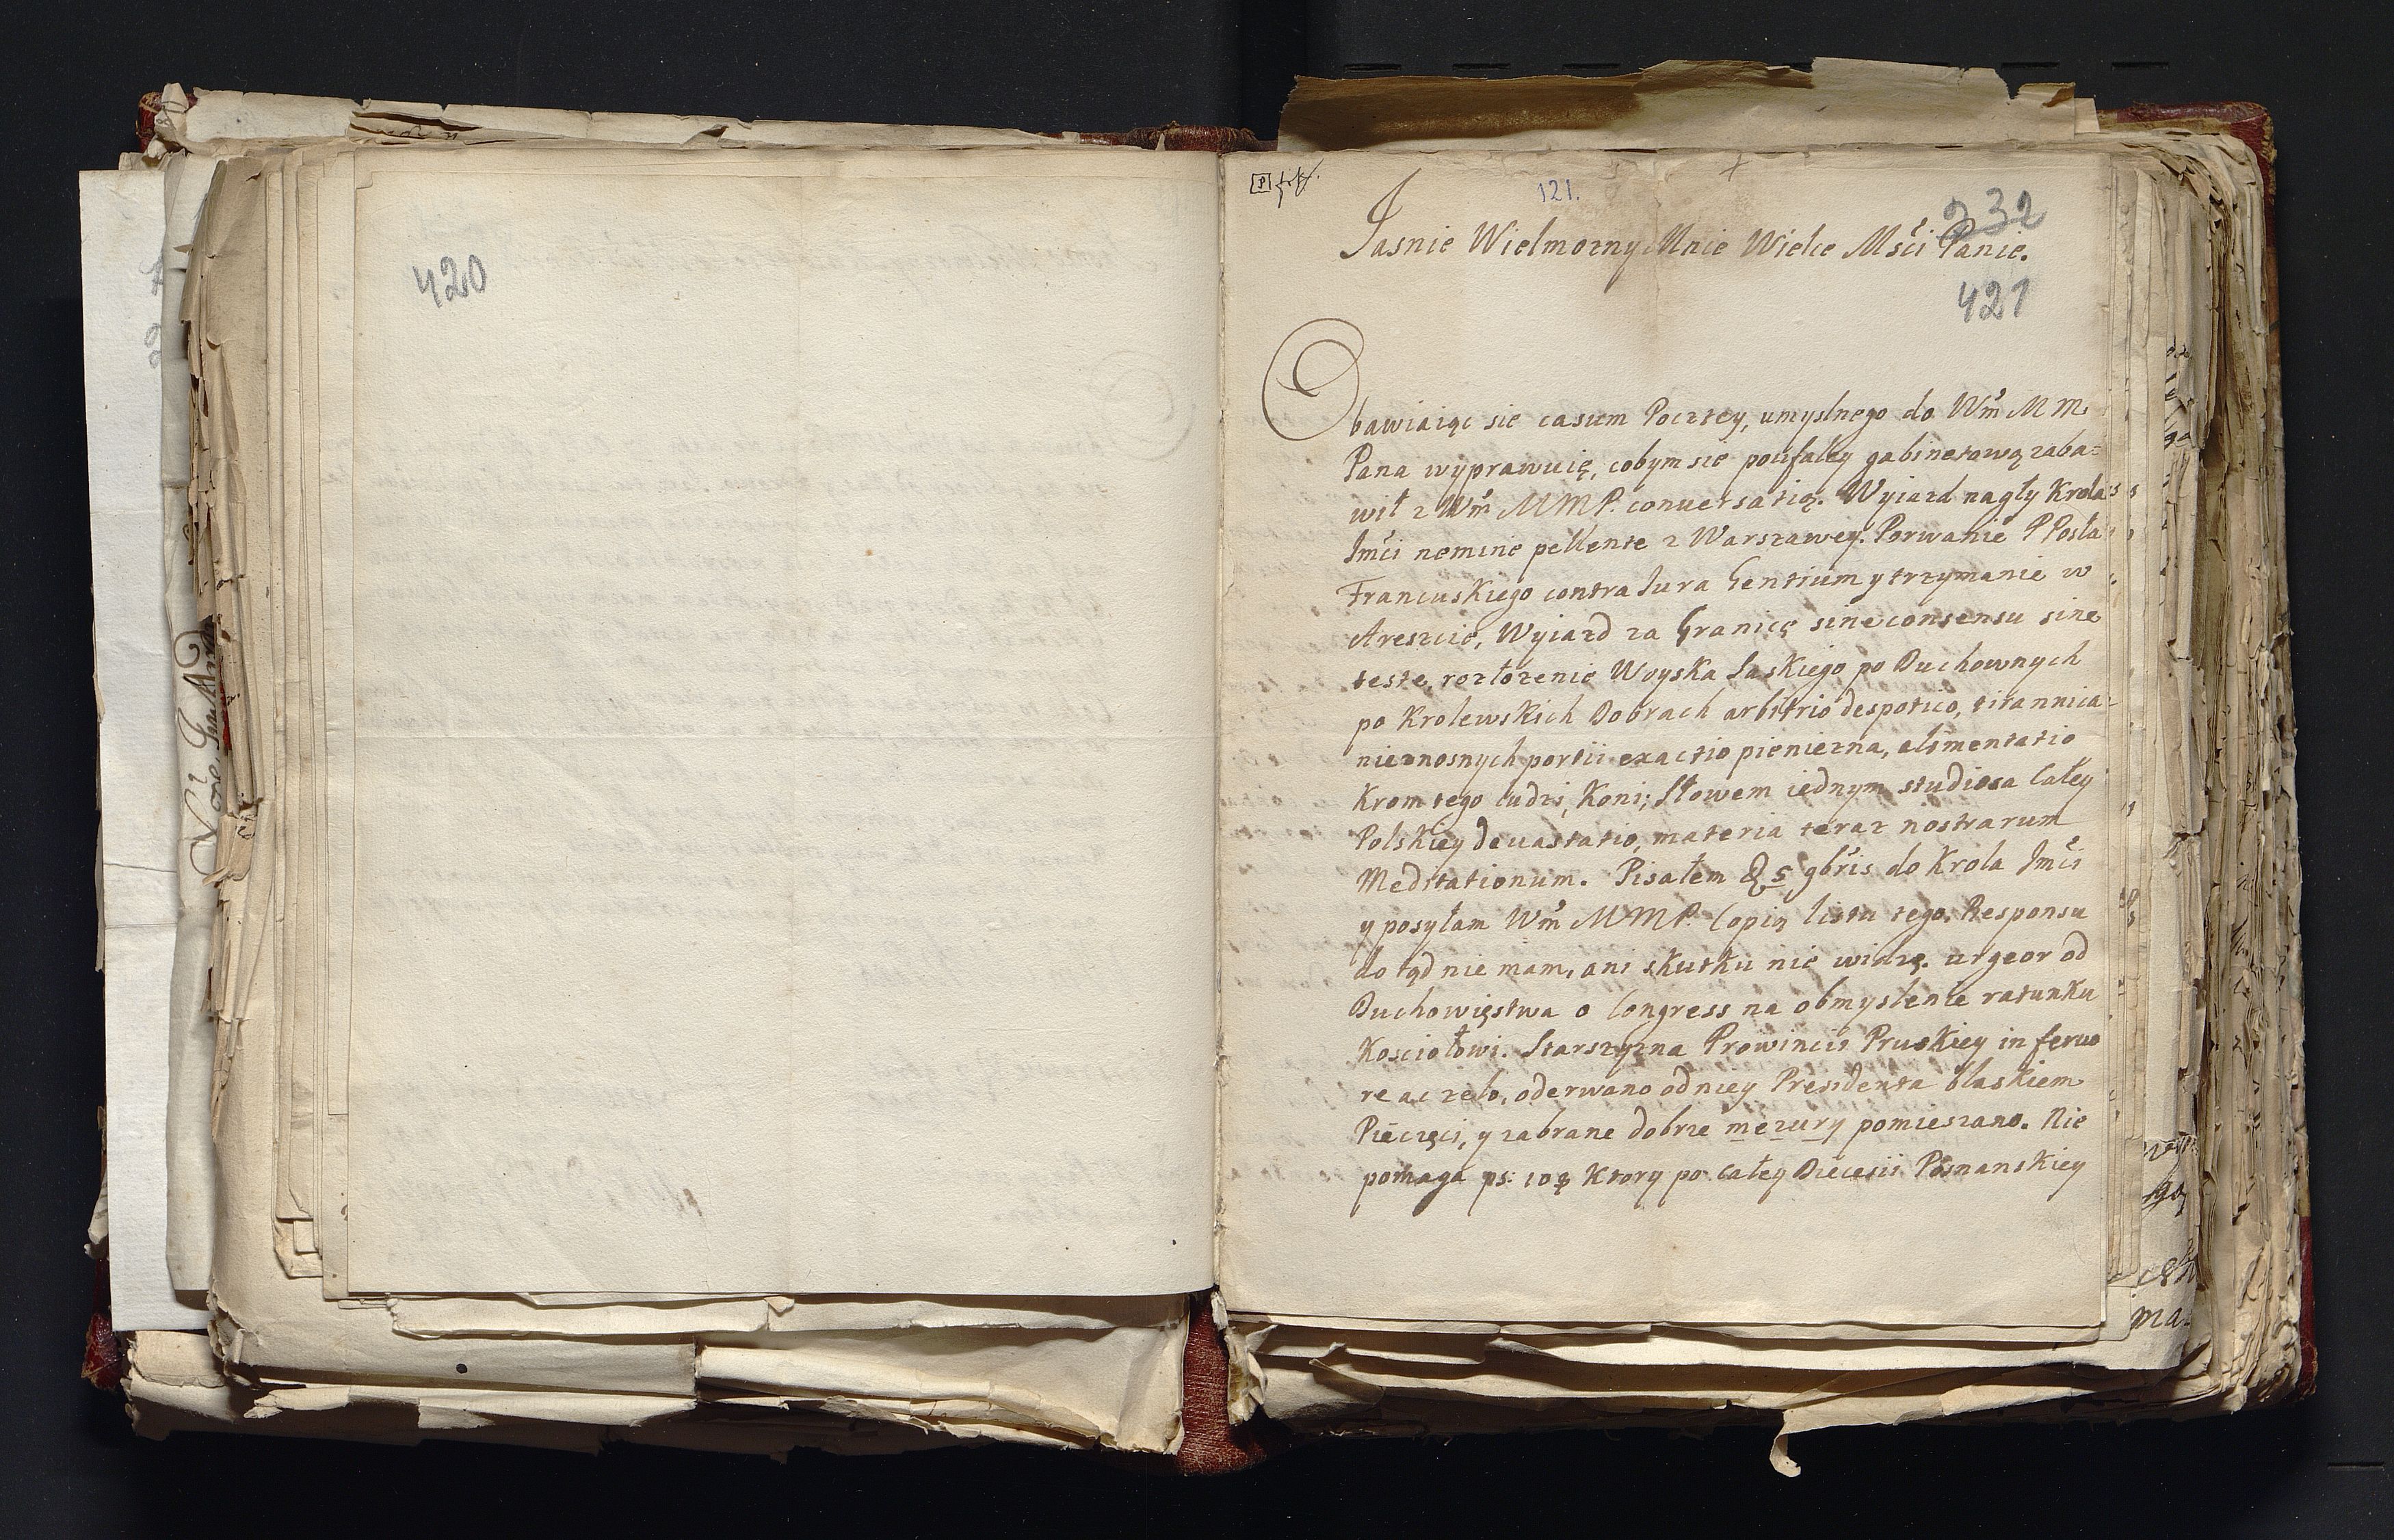 420
121.
232
Jasnie Wielmozny Mnie Wielce Mści Panie.
421
Obawiaiąc sie casum Poczty, umyslnego do Wm̃ M M
Pana wyprawuię, cobym sie poufałey gabinetową zaba=
wił z Wm̃ MMP. conuersatią. Wyiazd nagły Krola
Jmći nemine pellente z Warszawey. Porwanie P Posła
Francuskiego contra Jura Gentium y trzymanie w
Areszcie, Wyiazd za Granicę sine consensu sine
teste, rozłozenie Woyska Saskiego po Duchownych
po Krolewskich Dobrach arbitrio despotico, titannica
nieznosnych portii exactio pieniezna, alimentatio
Krom tego ludzi, Koni; Słowem iednym studiosa całey
Polskiey deuastatio, materia teraz nostrarum
Meditationum. Pisałem 5 9bris do Krola Jmći
y posyłam Wm̃ MMP. Copią listu tego. Responsu
do tąd nie mam, ani skutku nie widzę. urgeor od
Duchowięstwa o Congress na obmyslenie ratunku
Kosciołowi. Starszyzna Prowincii Pruskiey in feruo
re ac zelo, oderwano od niey Presidenta blaskiem
Pieczęci, y zabrane dobrze mezury pomieszano. Nie
pomaga ps: 108 Ktory po całey Diecesii Posnanskiey